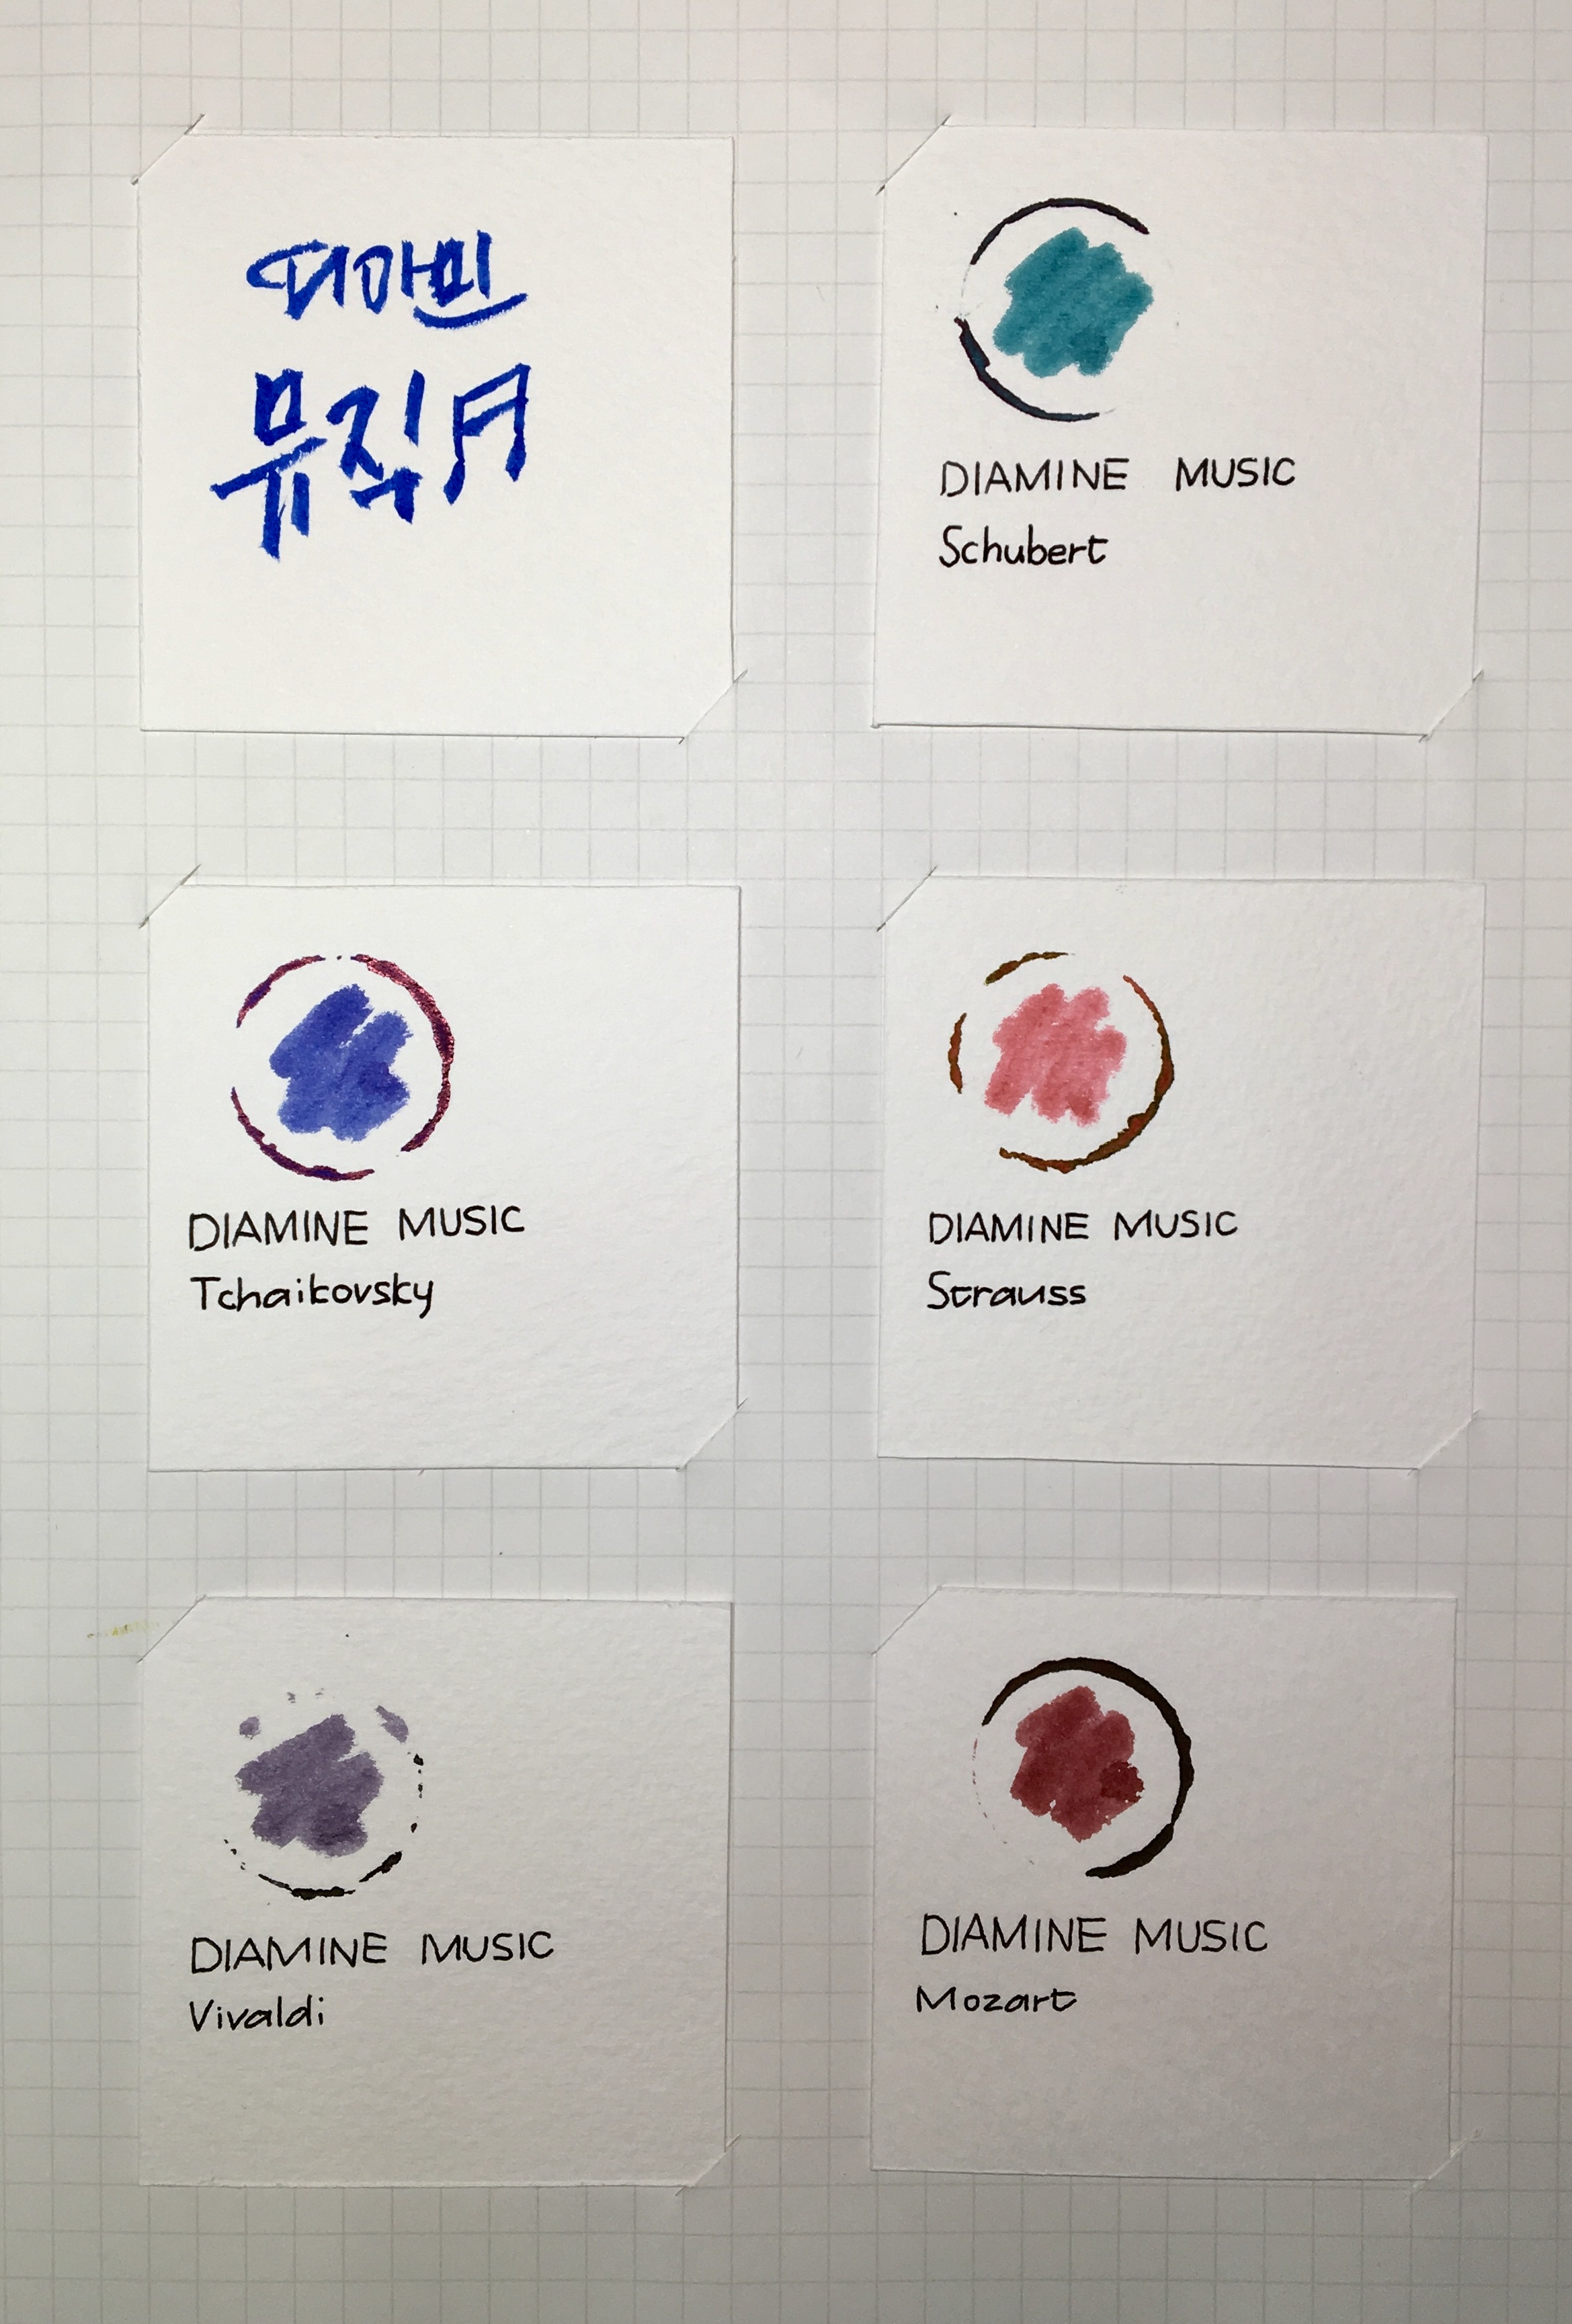 디아민
뮤직♬
DIAMINE MUSIC
Schubert
DIAMINE MUSIC
Tchaikovsky
DIAMINE MUSIC
Strauss
DIAMINE MUSIC
Vivaldi
DIAMINE MUSIC
Mozart